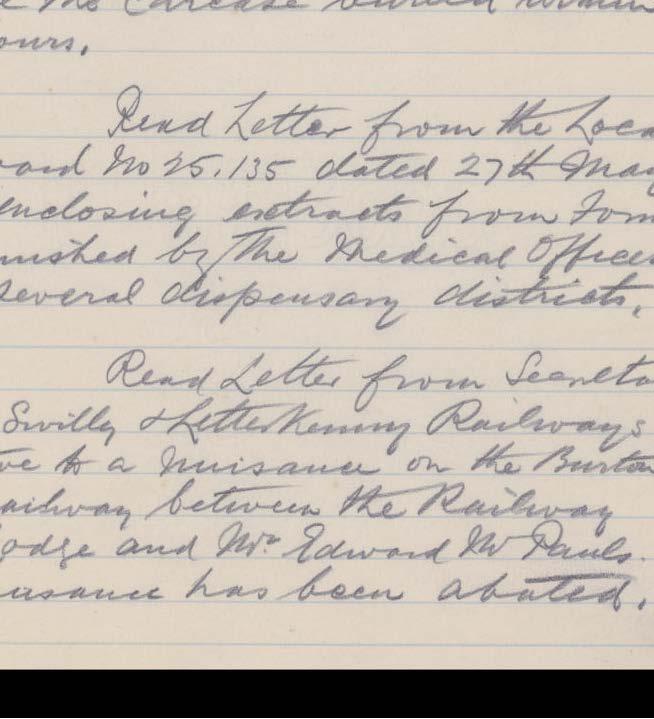 the carcase buried within
ours.
Read Letter from the Loca
oard No 25.135 dated 27th May
enclosing extracts from Form
nished by the Medical Officer
several dispensary districts.
Read Letter from Secreta
Swilly & Letterkenny Railways
ive to a nuisance on the Burton
ailway between the Railway
odge and Mr. Edward McPauls.
uisance has been abated.